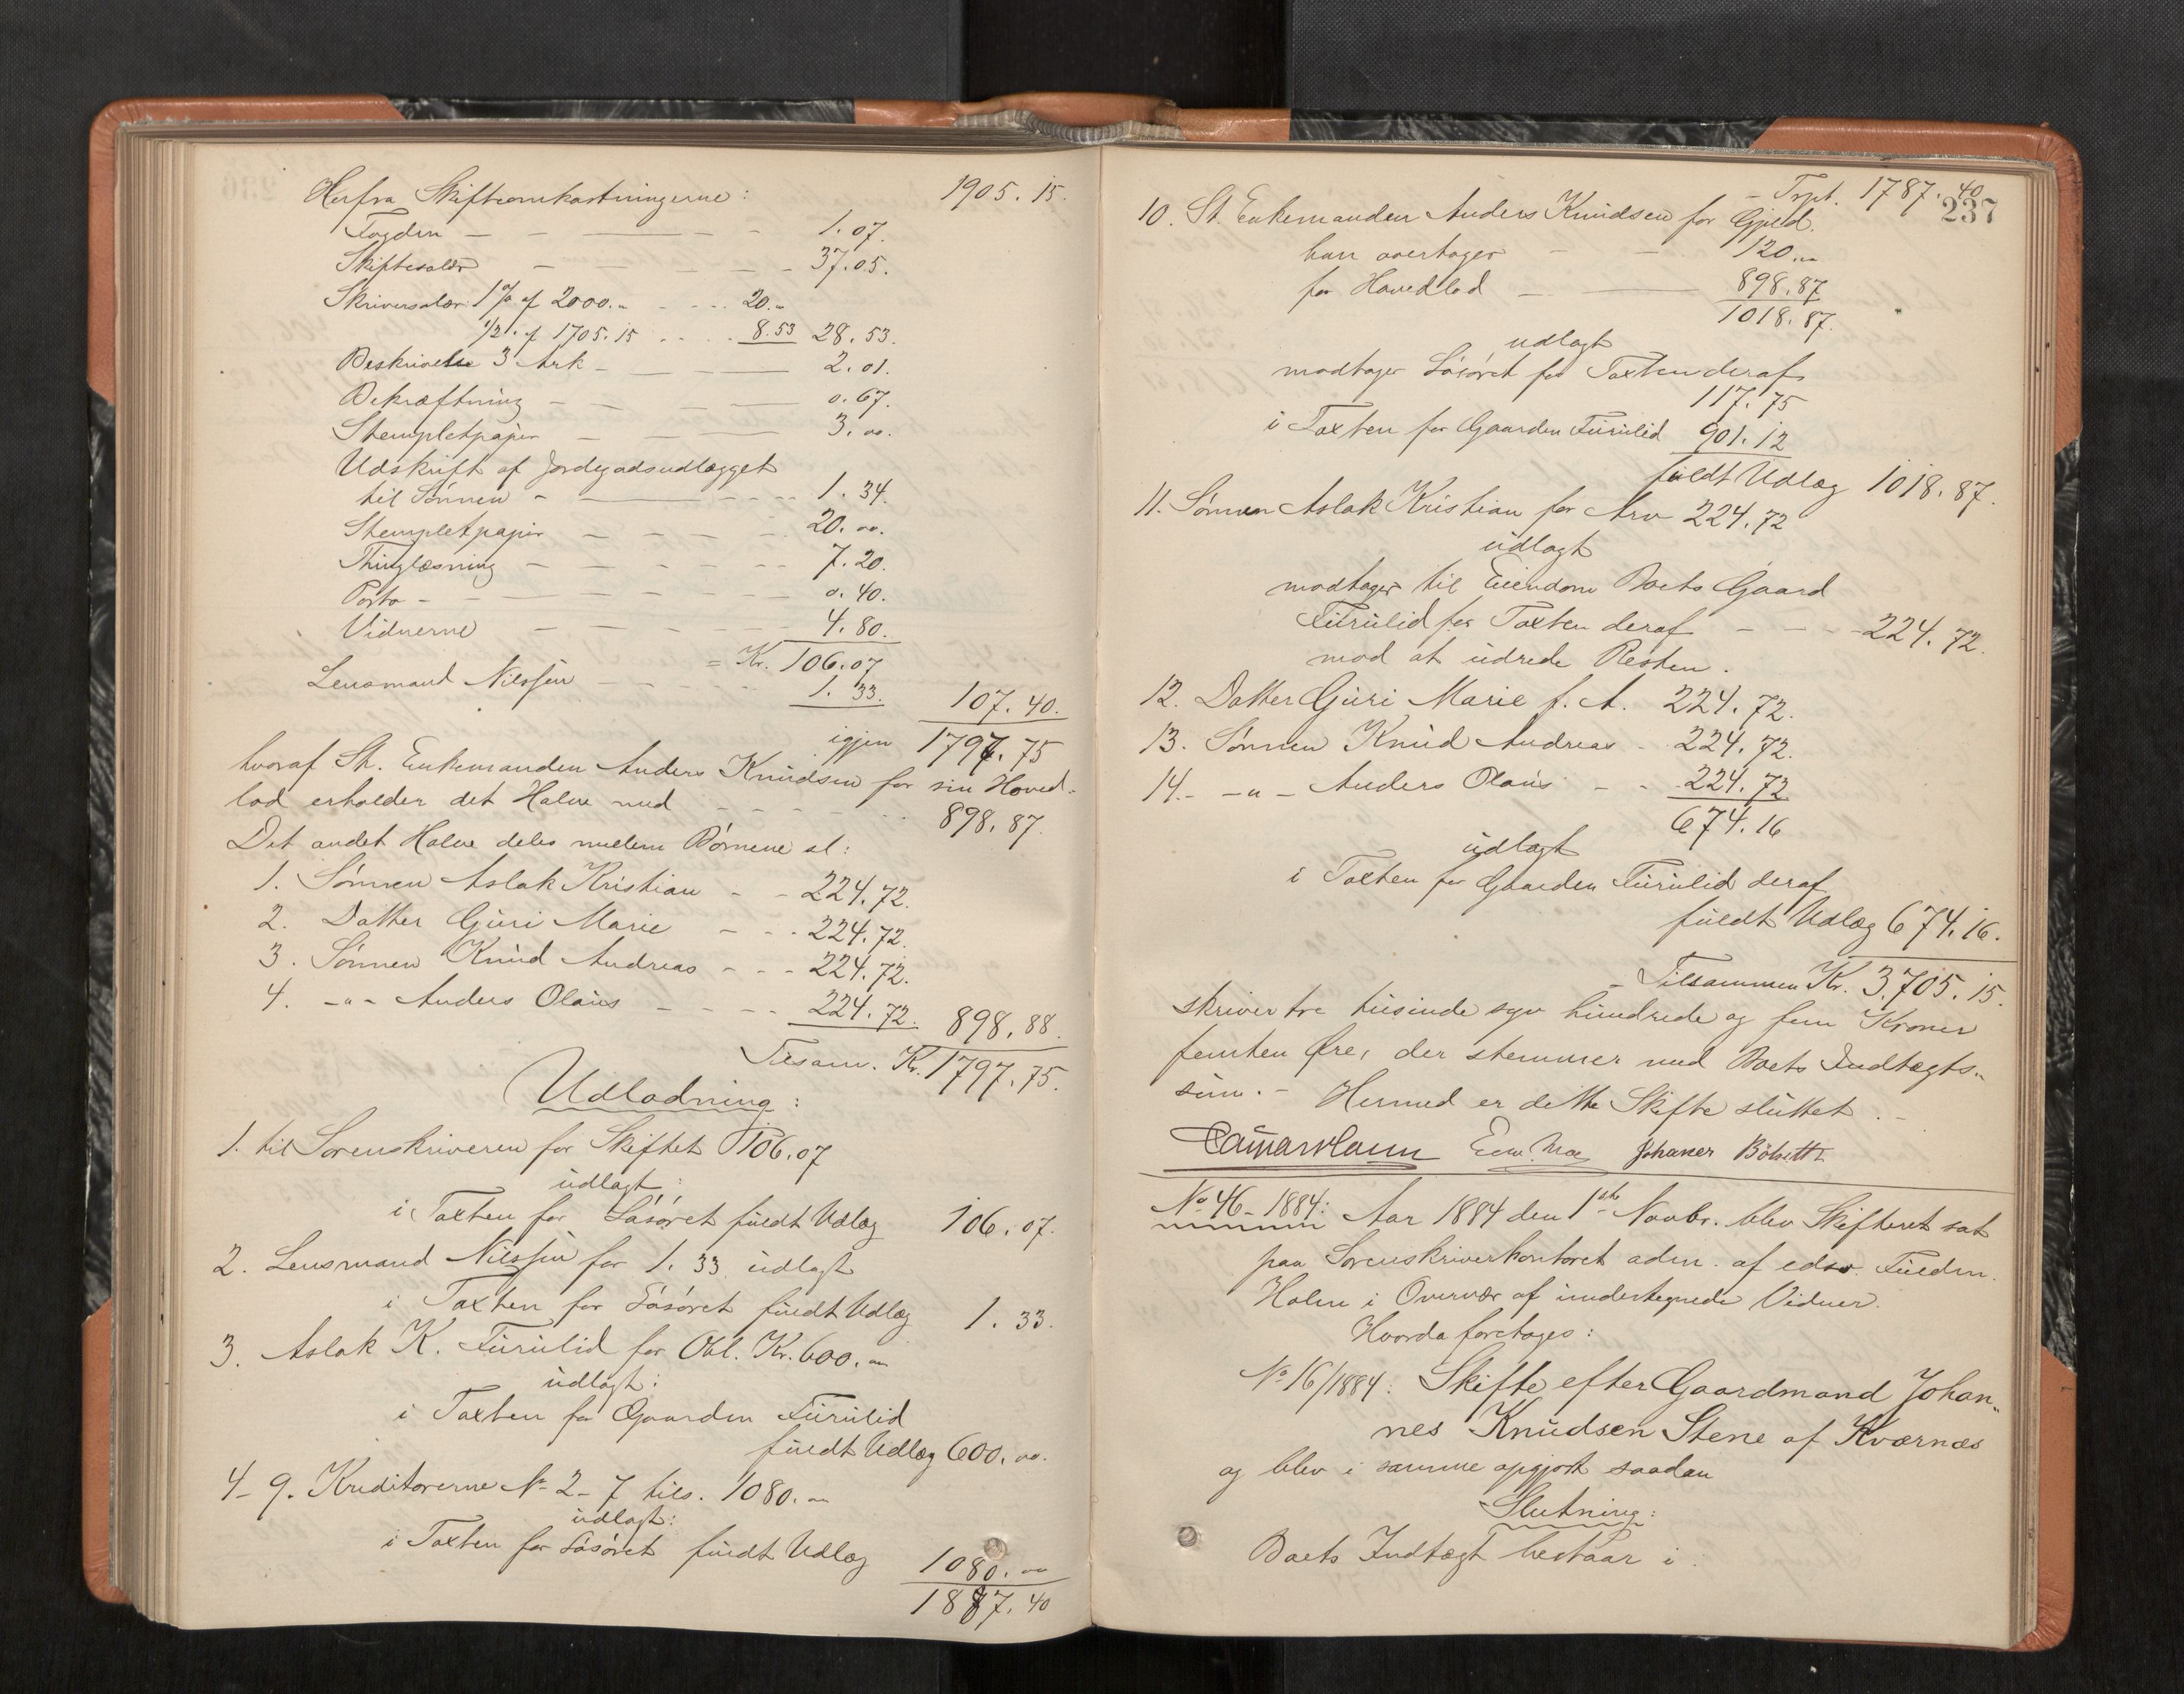 Herfra Skifteomkostningerne: 1905.15.
Fogden — — — 1.07.
Skiftesalær — — — 37.05.
Skriversalær 1 % af 2000.„ - - - 20.„
1/2 % af 1705.15 . . . . 8.53 28.53.
Beskrivelse 3 Ark — — 2.01.
Bekræftning — — — 0.67.
Stempletpapir — — 3.00.
Udskrift af Jordegodsudlægget
til Sønnen — — — 1.34.
Stempletpapir — — — 20.00.
Thinglæsning — — — 7.20.
Porto — — — 0.40.
Vidnerne — — — 4.80.
= Kr. 106.07
Lensmand Nilssen — — — 1.33. 107.40.
igjen 1797.75
hvoraf St. Enkemanden Anders Knudsen for sin Hoved-
lod erholder det Halve med — — — 898.87.
Det andet Halve deles mellem Børnene sl:
1. Sønnen Aslak Kristian - - 224.72.
2. Datter Guri Marie - - - 224.72.
3. Sønnen Knud Andreas - - - 224.72.
4. -"- Anders Olaus - - - - 224.72. 898.88.
Tilsam. Kr. 1797.75.
Udlodning:
1. til Sorenskriveren for Skiftet 106.07
udlagt:
i Taxten for Løsøret fuldt Udlæg 106.07.
2. Lensmand Nilssen for 1.33 udlagt
i Taxten for Løsøret fuldt Udlæg 1.33.
3. Aslak K. Furulid for Obl. Kr. 600.„
udlagt:
i Taxten for Gaarden Furulid
fuldt Udlæg 600.00.
4-9. Kreditorerne No 2-7 tils. 1080.„
udlagt:
i Taxten for Løsøret fuldt Udlæg 1080.00
1887.40
- Trspt. 1787.40
237
10. St. Enkemanden Anders Knudsen for Gjeld.
han overtager — — 120.„
for Hovedlod — — 898.87
1018.87.
udlagt
modtager Løsøret for Taxten deraf
117.75
i Taxten for Gaarden Furulid 901.12
fuldt Udlæg 1018.87.
11. Sønnen Aslak Kristian for Arv 224.72
udlagt
modtager til Eiendom Boets Gaard
Furulid for Taxten deraf — — — 224.72.
mod at udrede Resten.
12. Datter Guri Marie f. A. 224.72.
13. Sønnen Knud Andreas - 224.72.
14. - -"- Anders Olaus - - 224.72
674.16
udlagt
i Taxten for Gaarden Furulid deraf
fuldt Udlæg 674.16.
Tilsammen Kr. 3,705.15.
skriver tre tusinde syv hundrede og fem Kroner
femten Øre, der stemmer med Boets Indtægts-
sum. - Hermed er dette Skifte sluttet. -
Johaner
No 46 - 1884: Aar 1884 den 1ste Novbr. blev Skifteret sat
paa Sorenskriverkontoret adm. af edsv. Fuldm.
Holm i Overvær af undertegnede Vidner.
Hvorda foretages:
No 16/1884: Skifte efter Gaardmand Johan-
nes Knudsen Stene af Kværnæs
og blev i samme opgjort saadan
Slutning:
Boets Indtægt bestaar i